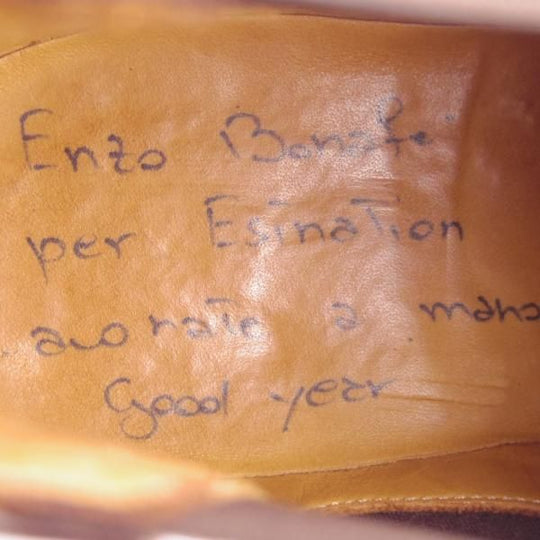 Enzo Bonafe'
per Esination
lavorate a mano
Good year